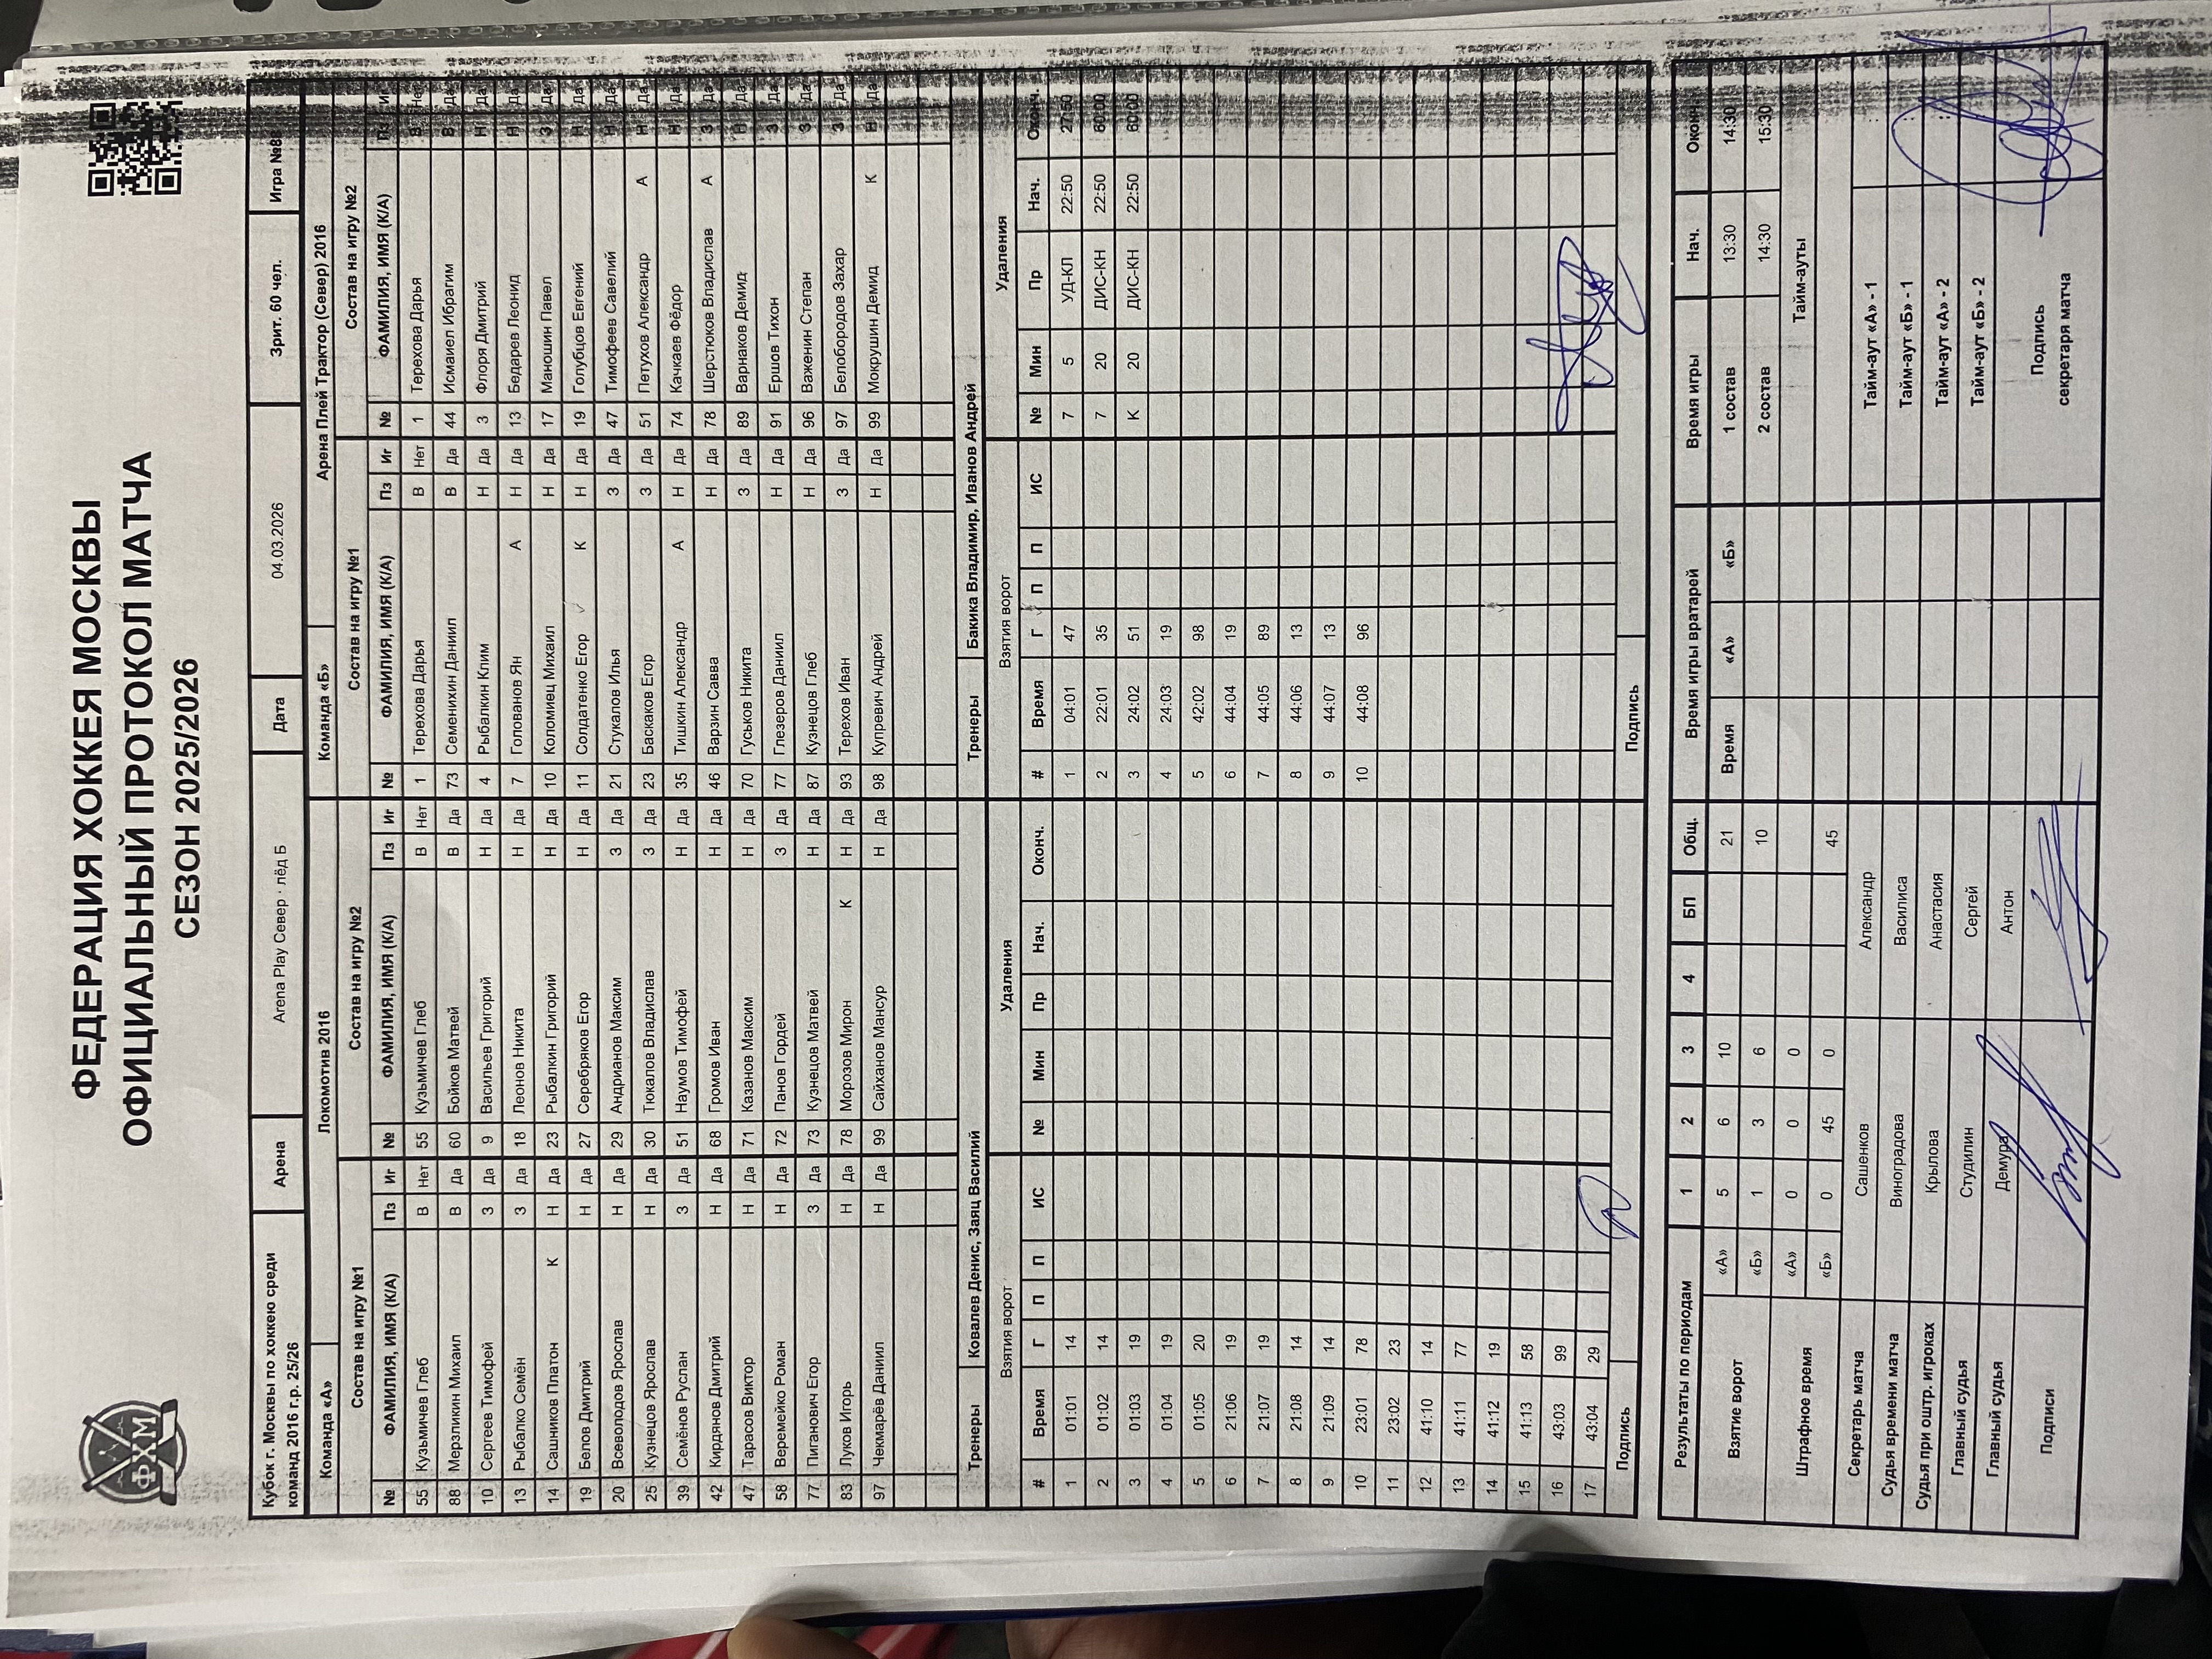 ФЕДЕРАЦИЯ ХОККЕЯ МОСКВЫ
ОФИЦИАЛЬНЫЙ ПРОТОКОЛ МАТЧА
СЕЗОН 2025/2026
ФХМ
Кубок г. Москвы по хоккею среди команд 2016 г.р. 25/26 Арена Arena Play Север · лёд Б Дата 04.03.2026 Зрит. 60 чел. Игра №88
Команда «А» Локомотив 2016 Команда «Б» Арена Плей Трактор (Север) 2016
Состав на игру №1 Состав на игру №2 Состав на игру №1 Состав на игру №2
№ ФАМИЛИЯ, ИМЯ (К/А) Пз Иг № ФАМИЛИЯ, ИМЯ (К/А) Пз Иг № ФАМИЛИЯ, ИМЯ (К/А) Пз Иг № ФАМИЛИЯ, ИМЯ (К/А) Пз Иг
55 Кузьмичев Глеб В Нет 55 Кузьмичев Глеб В Нет 1 Терехова Дарья В Нет 1 Терехова Дарья В Нет
88 Мерзликин Михаил В Да 60 Бойков Матвей В Да 73 Семенихин Даниил В Да 44 Исмаиел Ибрагим В Да
10 Сергеев Тимофей З Да 9 Васильев Григорий Н Да 4 Рыбалкин Клим Н Да 3 Флоря Дмитрий Н Да
13 Рыбалко Семён З Да 18 Леонов Никита Н Да 7 Голованов Ян А Н Да 13 Бедарев Леонид Н Да
14 Сашников Платон К Н Да 23 Рыбалкин Григорий Н Да 10 Коломиец Михаил Н Да 17 Маношин Павел З Да
19 Белов Дмитрий Н Да 27 Серебряков Егор Н Да 11 Солдатенко Егор К Н Да 19 Голубцов Евгений Н Да
20 Всеволодов Ярослав Н Да 29 Андрианов Максим З Да 21 Стукалов Илья З Да 47 Тимофеев Савелий Н Да
25 Кузнецов Ярослав Н Да 30 Тюкалов Владислав З Да 23 Баскаков Егор З Да 51 Петухов Александр А Н Да
39 Семёнов Руслан З Да 51 Наумов Тимофей Н Да 35 Тишкин Александр А Н Да 74 Качкаев Фёдор Н Да
42 Кирдянов Дмитрий Н Да 68 Громов Иван Н Да 46 Варзин Савва Н Да 78 Шерстюков Владислав А З Да
47 Тарасов Виктор Н Да 71 Казанов Максим Н Да 70 Гуськов Никита З Да 89 Варнаков Демид Н Да
58 Веремейко Роман Н Да 72 Панов Гордей З Да 77 Глезеров Даниил Н Да 91 Ершов Тихон З Да
77 Пиганович Егор З Да 73 Кузнецов Матвей Н Да 87 Кузнецов Глеб Н Да 96 Важенин Степан З Да
83 Луков Игорь Н Да 78 Морозов Мирон К Н Да 93 Терехов Иван З Да 97 Белобородов Захар З Да
97 Чекмарёв Даниил Н Да 99 Сайханов Мансур Н Да 98 Купревич Андрей Н Да 99 Мокрушин Демид К Н Да
Тренеры Ковалев Денис, Заяц Василий Тренеры Бакика Владимир, Иванов Андрей
Взятия ворот Удаления Взятия ворот Удаления
# Время Г П П ИС № Мин Пр Нач. Оконч. # Время Г П П ИС № Мин Пр Нач. Оконч.
1 01:01 14 1 04:01 47 7 5 УД-КЛ 22:50 27:50
2 01:02 14 2 22:01 35 7 20 ДИС-КН 22:50 60:00
3 01:03 19 3 24:02 51 К 20 ДИС-КН 22:50 60:00
4 01:04 19 4 24:03 19
5 01:05 20 5 42:02 98
6 21:06 19 6 44:04 19
7 21:07 19 7 44:05 89
8 21:08 14 8 44:06 13
9 21:09 14 9 44:07 13
10 23:01 78 10 44:08 96
11 23:02 23
12 41:10 14
13 41:11 77
14 41:12 19
15 41:13 58
16 43:03 99
17 43:04 29
Подпись Подпись
Результаты по периодам 1 2 3 4 БП Общ. Время игры вратарей Время игры Нач. Оконч.
Взятие ворот «А» 5 6 10 21 Время «А» «Б» 1 состав 13:30 14:30
«Б» 1 3 6 10 2 состав 14:30 15:30
Штрафное время «А» 0 0 0 Тайм-ауты
«Б» 0 45 0 45
Секретарь матча Сашенков Александр Тайм-аут «А» - 1 :
Судья времени матча Виноградова Василиса Тайм-аут «Б» - 1 :
Судья при оштр. игроках Крылова Анастасия Тайм-аут «А» - 2 :
Главный судья Студилин Сергей Тайм-аут «Б» - 2 :
Главный судья Демура Антон
Подписи Подпись секретаря матча